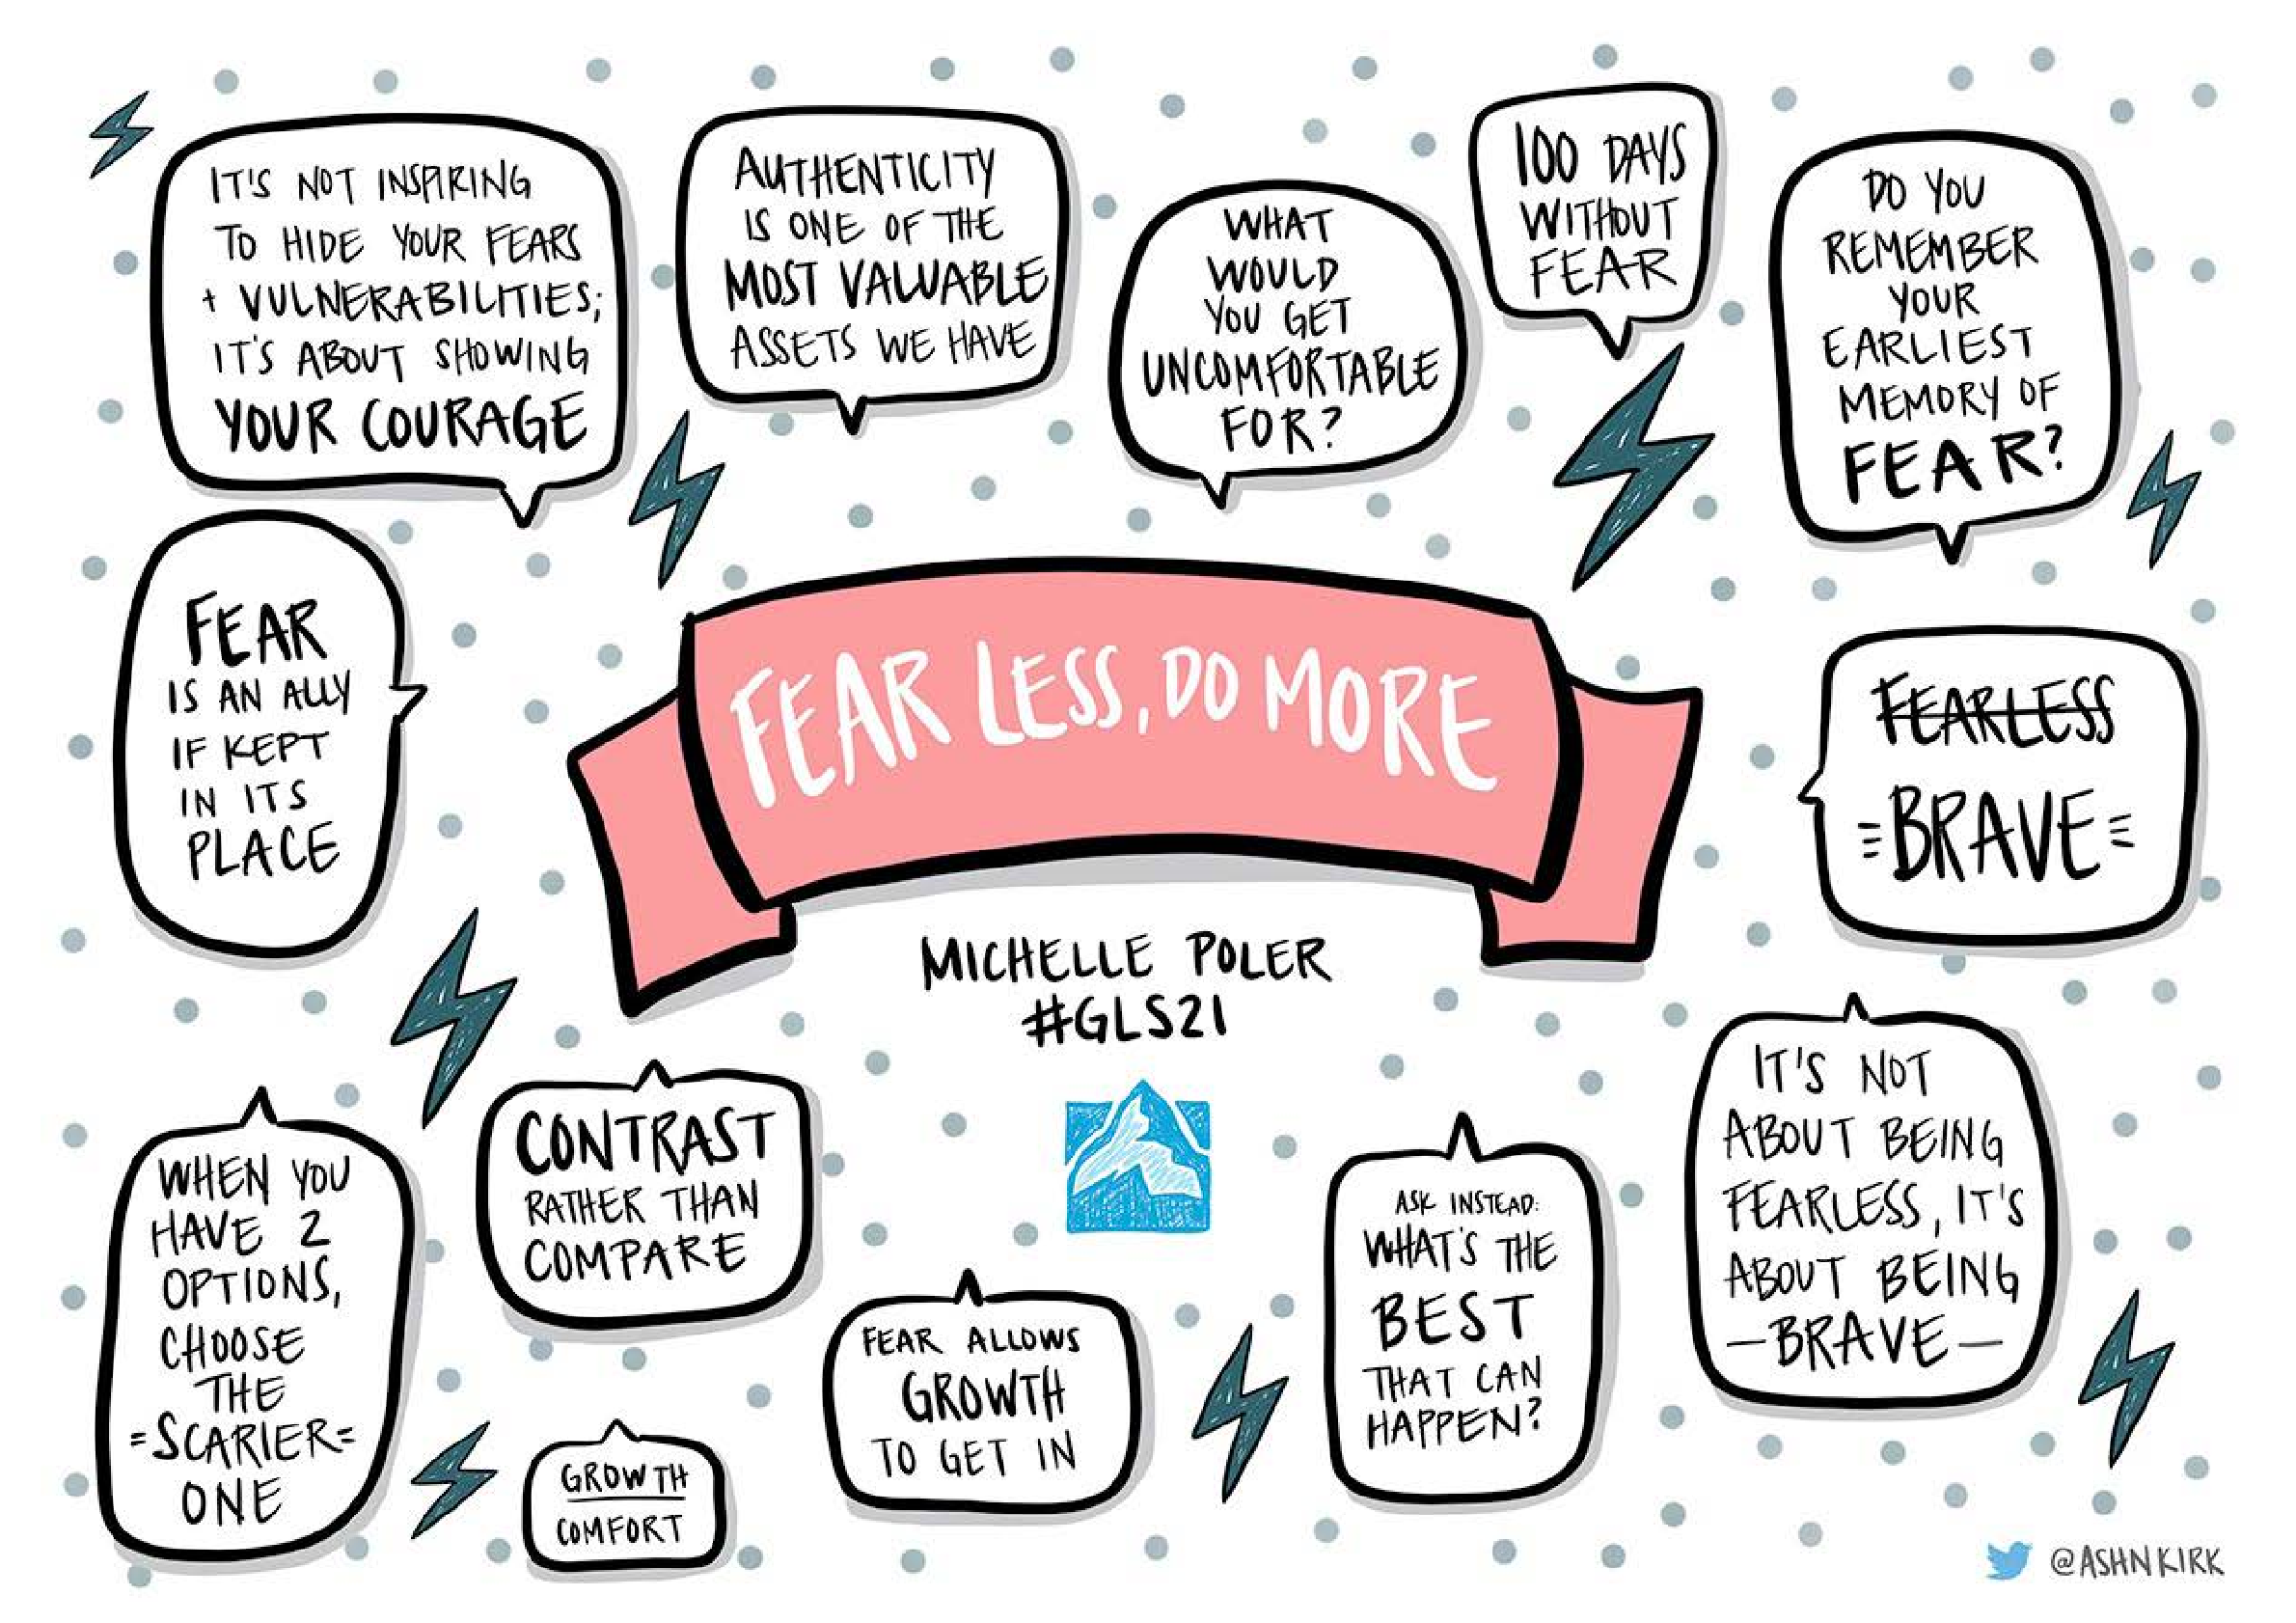 IT'S NOT INSPIRING
TO HIDE YOUR FEARS
+ VULNERABILITIES;
IT'S ABOUT SHOWING
YOUR COURAGE
AUTHENTICITY
IS ONE OF THE
MOST VALUABLE
ASSETS WE HAVE
WHAT
WOULD
YOU GET
UNCOMFORTABLE
FOR?
100 DAYS
WITHOUT
FEAR
DO YOU
REMEMBER
YOUR
EARLIEST
MEMORY OF
FEAR?
FEAR
IS AN ALLY
IF KEPT
IN ITS
PLACE
FEAR LESS, DO MORE
MICHELLE POLER
#GLS21
FEARLESS
BRAVE
WHEN YOU
HAVE 2
OPTIONS,
CHOOSE
THE
=SCARIER=
ONE
CONTRAST
RATHER THAN
COMPARE
GROWTH
COMFORT
FEAR ALLOWS
GROWTH
TO GET IN
ASK INSTEAD:
WHAT'S THE
BEST
THAT CAN
HAPPEN?
IT'S NOT
ABOUT BEING
FEARLESS, IT'S
ABOUT BEING
—BRAVE—
@ASHNKIRK